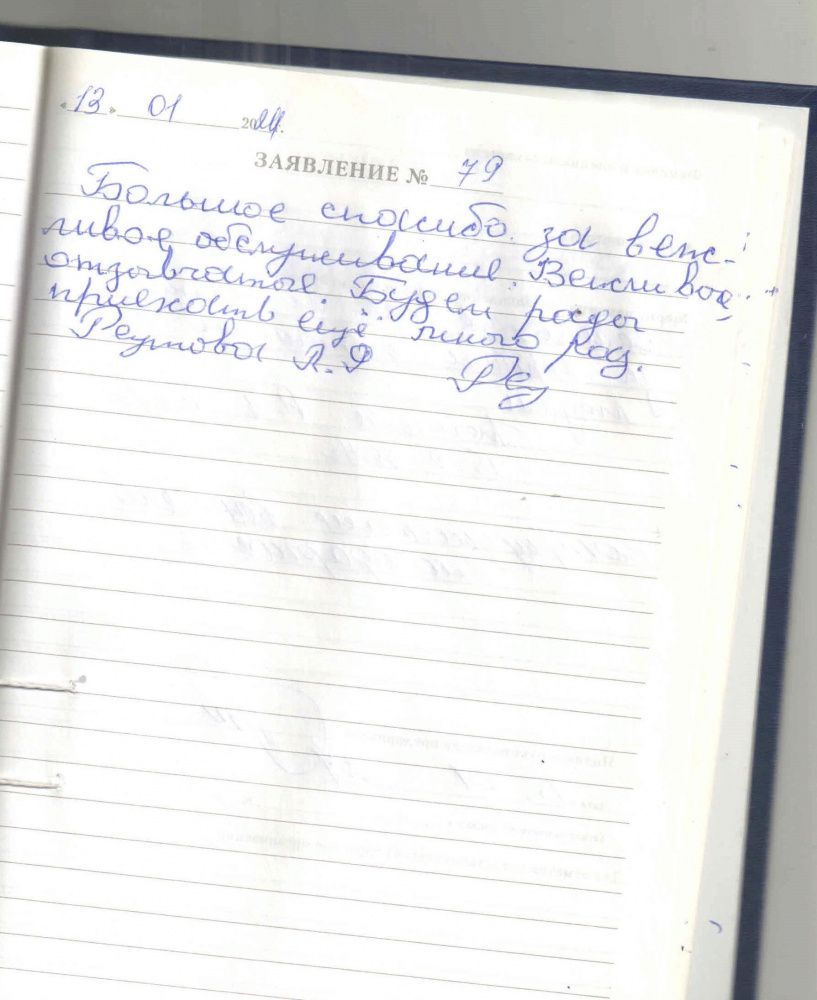 «13» 01 2024.
ЗАЯВЛЕНИЕ № 79
Большое спасибо за веж-
ливое обслуживание. Вежливое,
отзывчатое. Будем рады
приехать ещё много раз.
Реутова Л.Я Реу